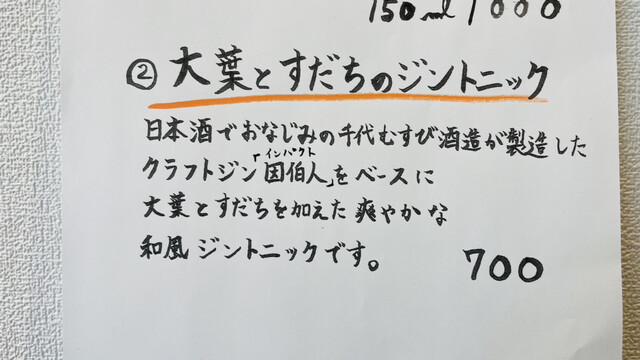 150ml 1000
② 大葉とすだちのジントニック
日本酒でおなじみの千代むすび酒造が製造した
インパクト
クラフトジン「因伯人」をベースに
大葉とすだちを加えた爽やかな
和風ジントニックです。
700